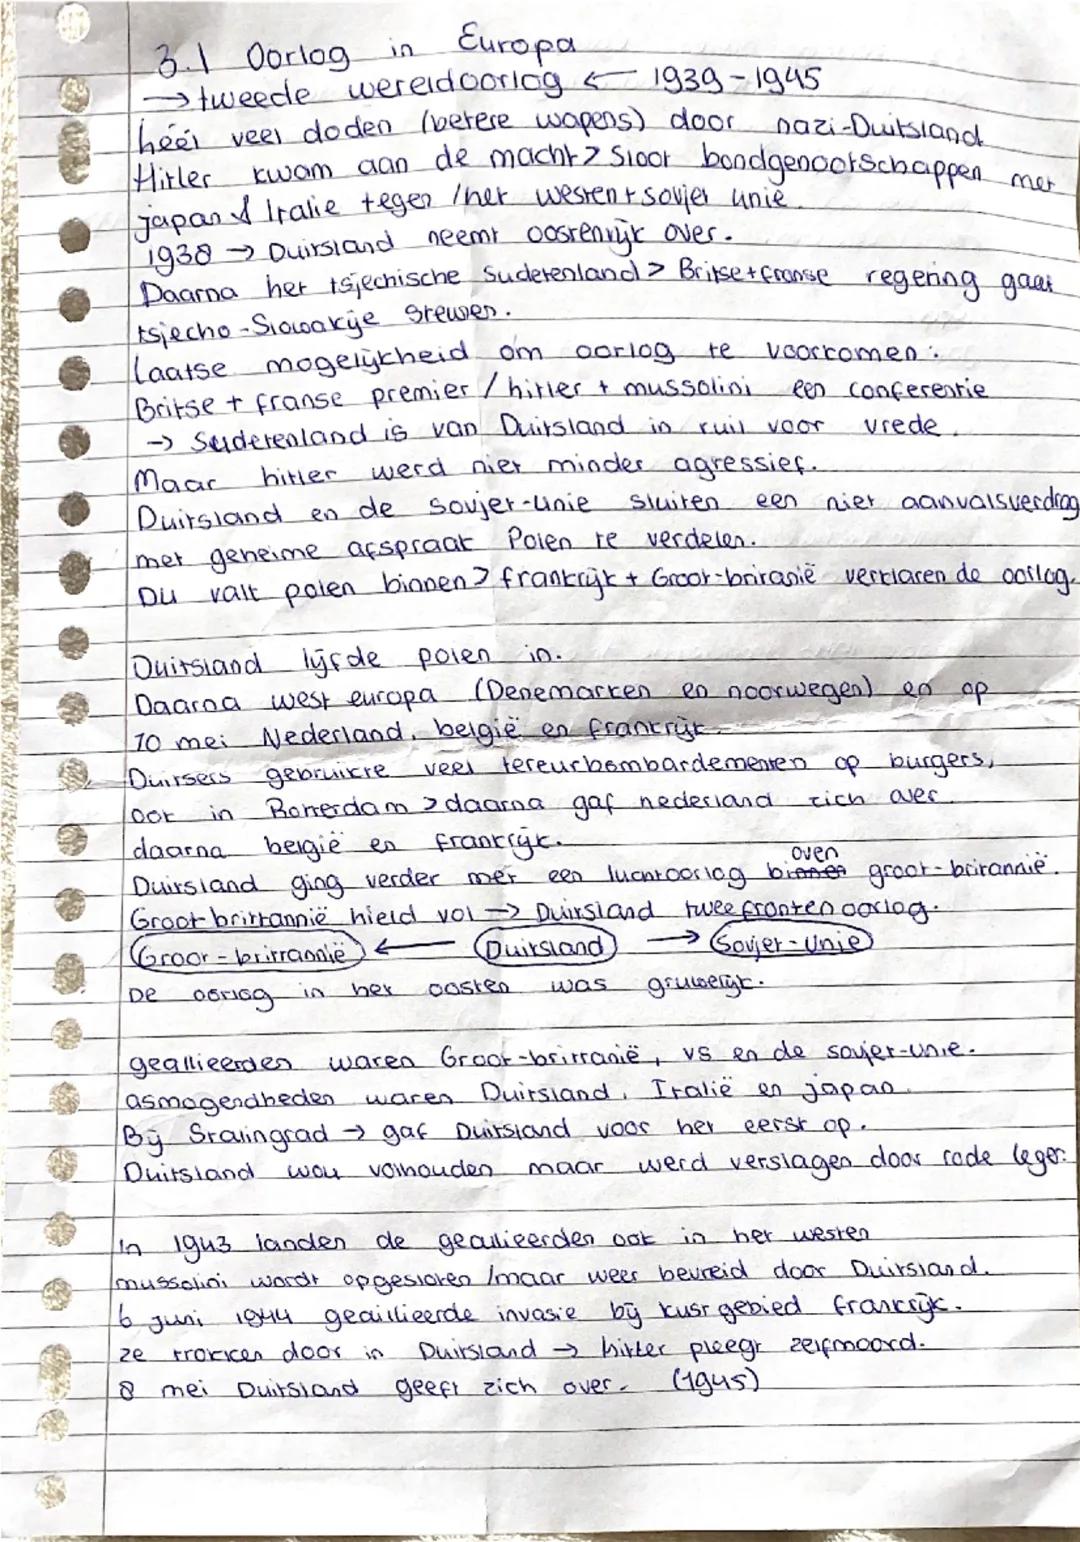 3.1 Oorlog in Europa
→ tweede wereldoorlog ← 1939-1945
héél veel doden (betere wapens) door nazi-Duitsland
Hitler kwam aan de macht > sloot bondgenootschappen met
japan & Italie tegen /het westen + sovjet unie.
1938 → Duitsland neemt oostenrijk over.
Daarna het tsjechische sudetenland > Britse + franse regering gaat
tsjecho-Slowakije steunen.
Laatse mogelijkheid om oorlog te voorkomen:
Britse + franse premier / hitler + mussolini een conferentie
→ Sudetenland is van Duitsland in ruil voor vrede.
Maar hitler werd niet minder agressief.
Duitsland en de sovjet-unie sluiten een niet aanvalsverdrag
met geheime afspraak Polen te verdelen.
DU valt polen binnen > frankrijk + Groot-britanië verklaren de oorlog.
Duitsland lijfde polen in.
Daarna west europa (Denemarken en noorwegen) en op
10 mei Nederland, belgië en frankrijk.
Duitsers gebruikte veel tereurbombardementen op burgers,
ook in Rotterdam > daarna gaf nederland zich over.
daarna belgië en frankrijk.
Duitsland ging verder met een luchtoorlog binnen oven groot-britannië.
Groot brittannië hield vol → Duitsland twee fronten oorlog.
Groot-brittannië ← Duitsland → Sovjet-Unie
De oorlog in het oosten was gruwelijk.
geallieerden waren Groot-brittanië, VS en de sovjet-unie.
asmogendheden waren Duitsland, Italië en japan.
Bij Stalingrad → gaf Duitsland voor het eerst op.
Duitsland wou volhouden maar werd verslagen door rode leger.
In 1943 landen de geallieerden ook in het westen
mussolini wordt opgesloten /maar weer bevreid door Duitsland.
6 juni 1944 geaillieerde invasie bij kust gebied frankrijk.
ze trokken door in Duitsland → hitler pleegt zelfmoord.
8 mei Duitsland geeft zich over. (1945)